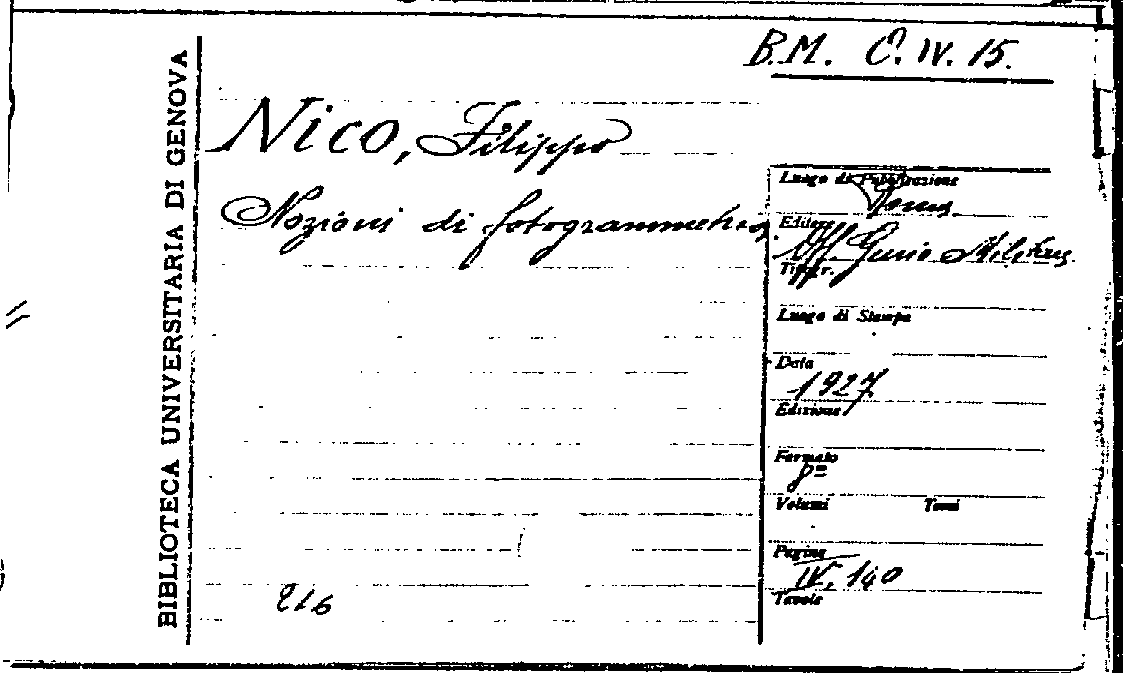 B.M. C. IV. 15.
BIBLIOTECA UNIVERSITARIA DI GENOVA
Nico, Filippo
Nozioni di fotogrammetria
Luogo di Pubblicazione
Roma
Editore
Uff. Genio Militare
Tipogr.
Luogo di Stampa
Data
1927
Edizione
Formato
8°
Volumi Tomi
Pagine
IV, 140
Tavole
216